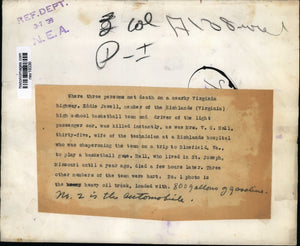 REF. DEPT.
N. E. A.
2 col
D-1
Where three persons met death on a nearby Virginia
highway. Eddie Jewell, member of the Richlands (Virginia)
high school basketball team and driver of the light
passenger car, was killed instantly, as was Mrs. T. G. Hall,
thirty-five, wife of the technician at a Richlands hospital
who was chaperoning the team on a trip to Bluefield, Va.,
to play a basketball game. Hall, who lived in St. Joseph,
Missouri until a year ago, died a few hours later. Three
other members of the team were hurt. No. 1 photo is
the heavy oil truck, loaded with 800 gallons of gasoline.
No. 2 is the automobile.